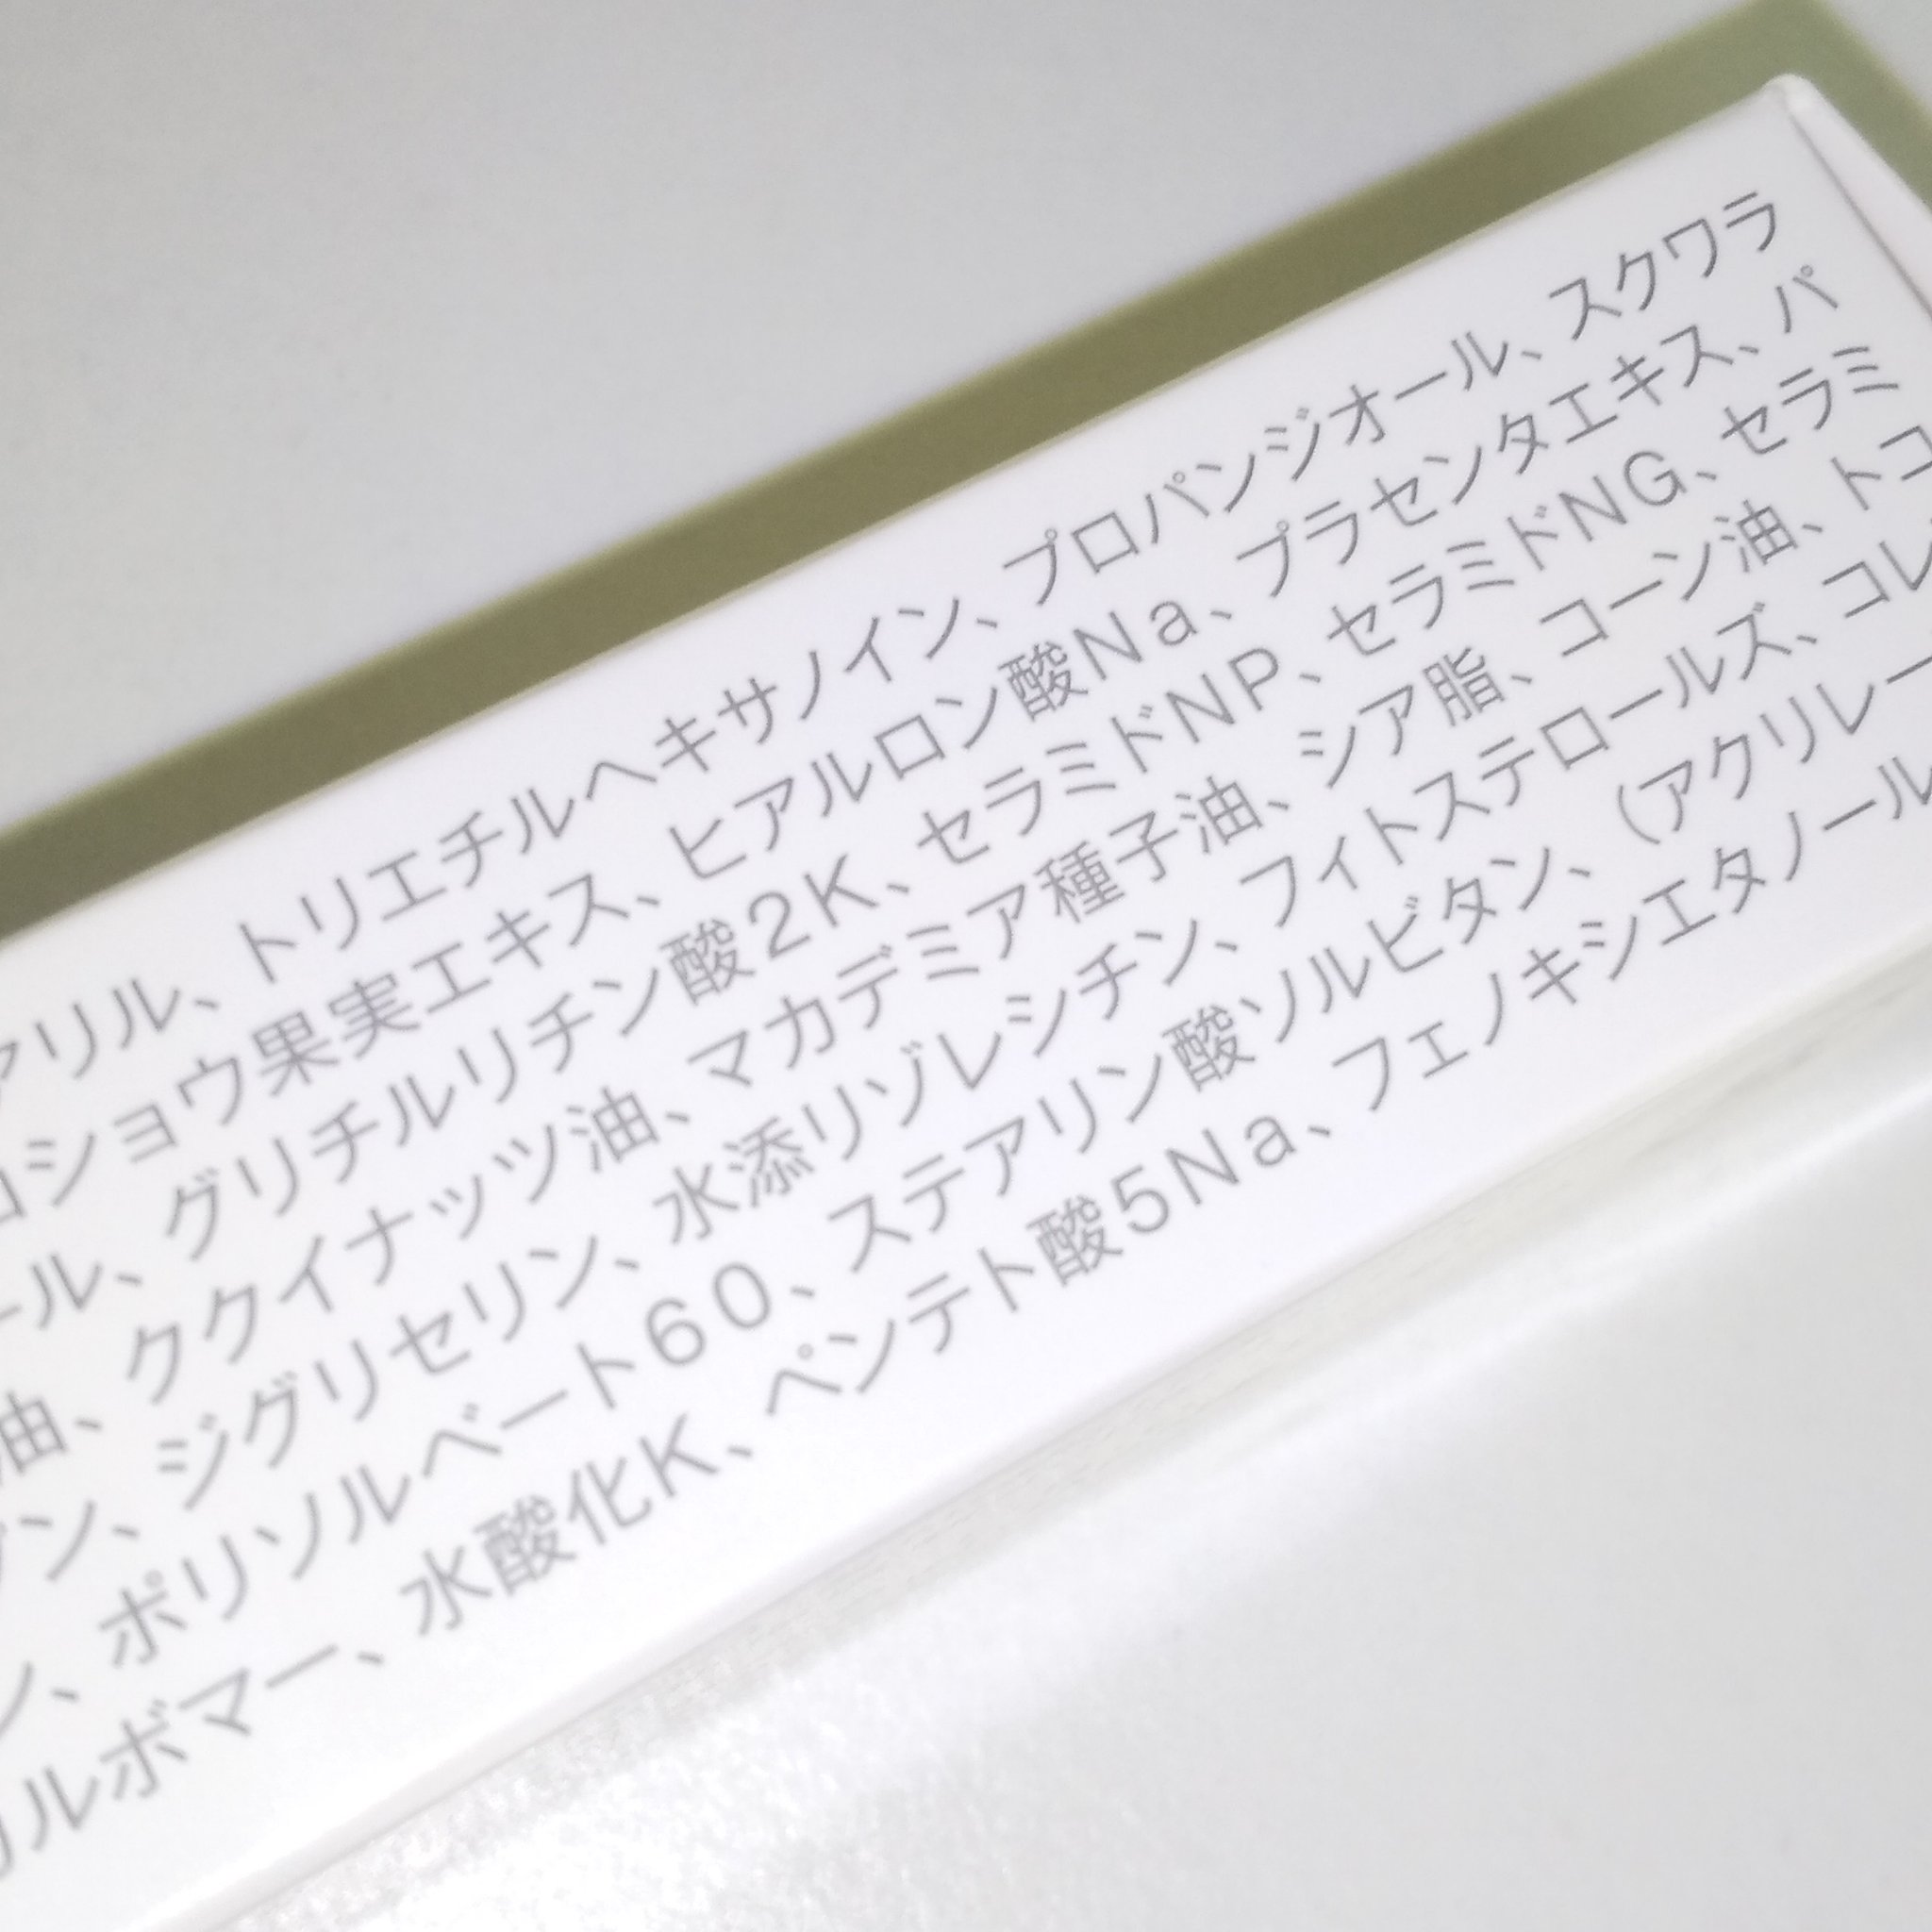 アリル、トリエチルヘキサノイン、プロパンジオール、スクワラ
ショウ果実エキス、ヒアルロン酸Na、プラセンタエキス、パ
ール、グリチルリチン酸2K、セラミドNP、セラミドNG、セラミ
油、ククイナッツ油、マカデミア種子油、シア脂、コーン油、トコ
ン、ジグリセリン、水添リゾレシチン、フィトステロールズ、コレ
ン、ポリソルベート60、ステアリン酸ソルビタン、(アクリレー
ルボマー、水酸化K、ペンテト酸5Na、フェノキシエタノール